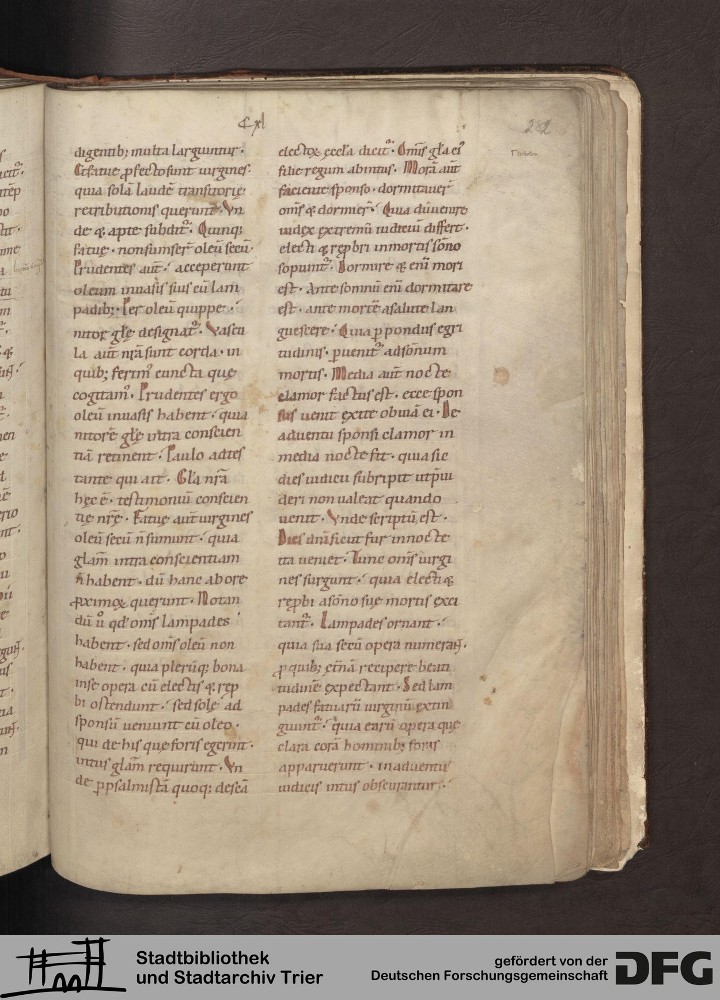 Cxl
282
digentib; multa larguntur.
Et fatuę ꝓfecto sunt uirgines.
quia solā laudē transitorię
retributionis querunt. Vn
de & apte subditᷣ. Quinq;
fatuę. non sumser̄ oleū secū.
Prudentes aut̄. acceperunt
oleum in uasis suis cū lam
padib;. Per oleū quippe.
nitor glę designatᷣ. Vascu
la aut̄ nr̄a sunt corda. in
quib; ferim᷒ cuncta que
cogitam᷒. Prudentes ergo
oleū in uasis habent. quia
nitorē glę intra conscien
tiā retinent. Paulo adtes
tante qui ait. Gl̄a nr̄a
hęc ē. testimoniū conscien
tię nr̄ę. Fatuę aut̄ uirgines
oleū secū n̄ sumunt. quia
glam̄ intra conscientiam
n̄ habent. dū hanc ab ore
ꝓximoꝝ querunt. Notan
dū u͛o qd̓ om̄s lampades
habent. sed om̄s oleū non
habent. quia plerūq; bona
in se opera cū electis & rep
bi ostendunt. sed solę ad
sponsū ueniunt cū oleo.
qui de his que foris egerint.
intus glam̄ requirunt. Vn
de ꝑ psalmistā quoq; deseā
electoꝝ eccl̄a dicitᷣ. Om̄is gl̄a ei᷒
filię regum ab intus. Morā aut̄
faciente sponso. dormitauer̄
om̄s & dormier̄. Quia dū uenire
iudex extremū iudiciū differt.
electi & rep̄bi in mortis sōno
sopiuntᷣ. Dormire & eni mori
est. Ante somnū eni dormitare
est. ante mortē a salute lan
guescere. Quia ꝑ pondus egri
tudinis. ꝑuenitᷣ ad sōnum
mortis. Media aut̄ nocte
clamor factus est. ecce spon
sus uenit exite obuiā ei. De
aduentu sponsi clamor in
media nocte fit. quia sic
dies iudicii subripit ut p̄ui
deri non ualeat quando
uenit. Vnde scriptū est.
Dies dn̄i sicut fur in nocte
ita ueniet. Tunc om̄s uirgi
nes surgunt. quia electi &
rep̄bi a sōno suę mortis exci
tantᷣ. Lampades ornant.
quia sua secū opera numerant.
ꝓ quib; et̄nā recipere beati
tudinē expectant. Sed lam
pades fatuarū uirginū extin
guuntᷣ. quia earū opera que
clara corā hominib; foris
apparuerunt. in aduentu
iudicis intus obscurantur.
Stadtbibliothek
und Stadtarchiv Trier
gefördert von der
Deutschen Forschungsgemeinschaft
DFG